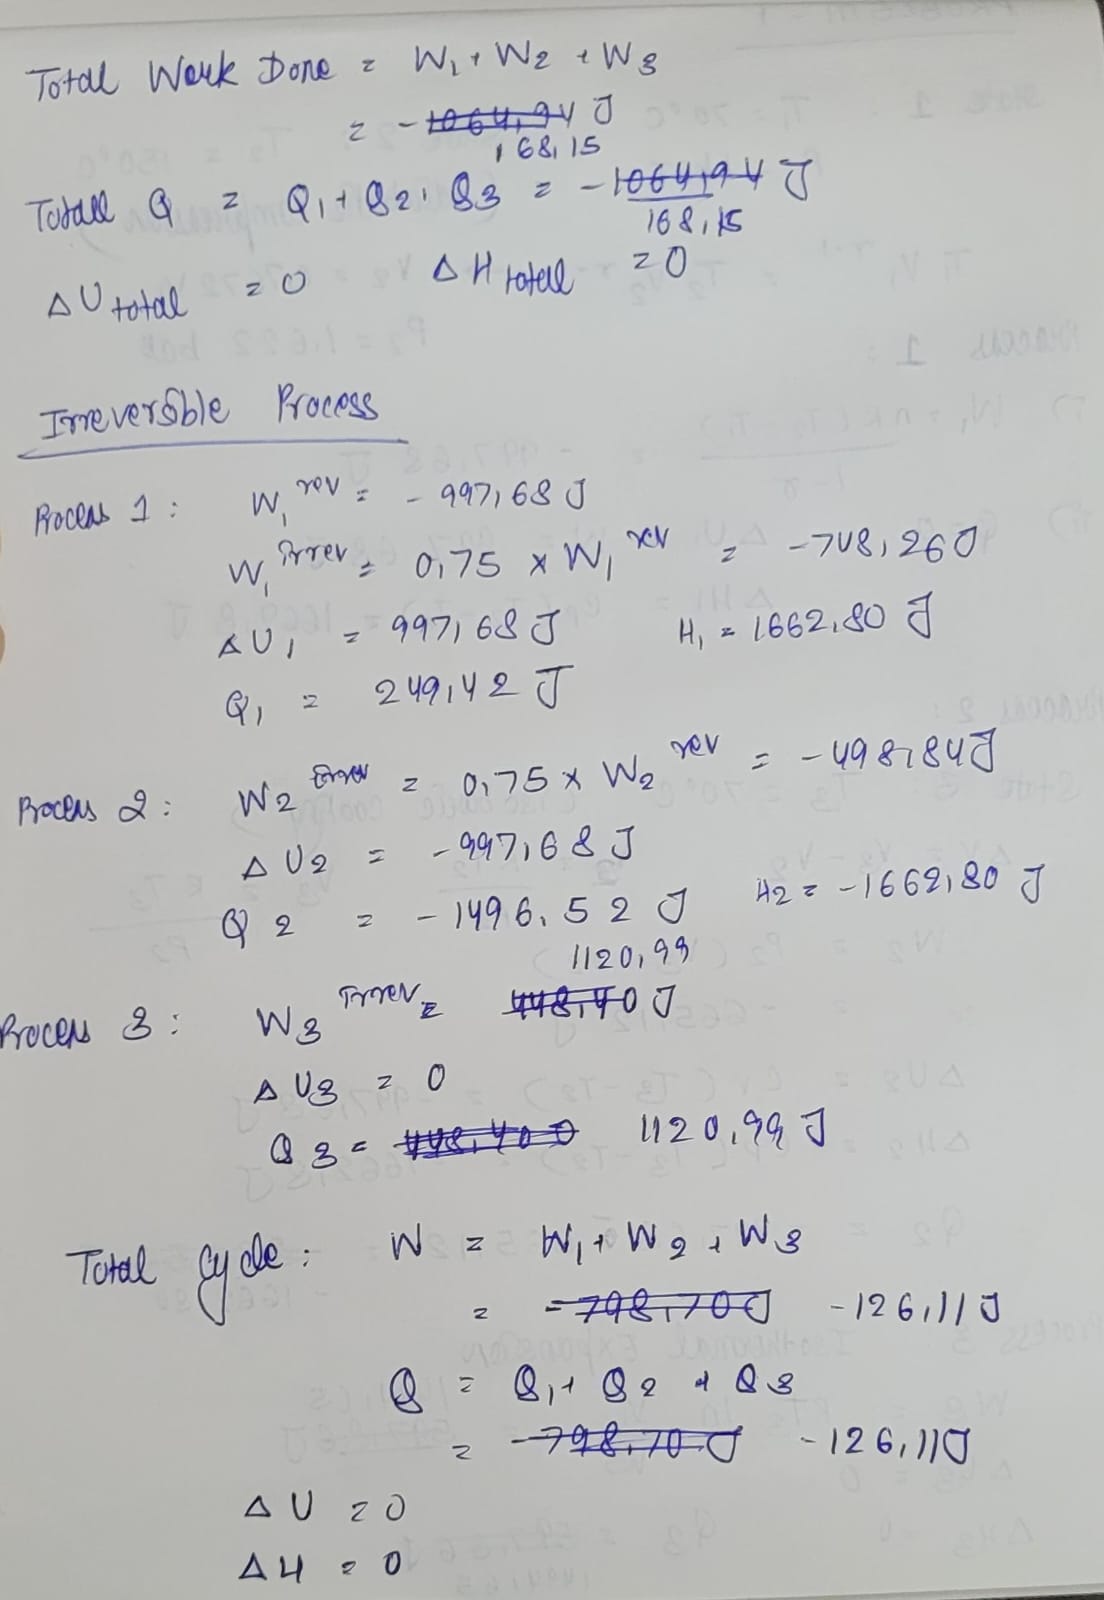 Total Work Done = W1 + W2 + W3
= - 1064,94 J
168,15
Totall Q = Q1 + Q2 + Q3 = - 1064,94 J
168,15
ΔU total = 0 ΔH total = 0
Irreversible Process
Process 1 : W1 rev = - 997,68 J
W1 Irrev = 0,75 x W1 rev = - 748,26 J
ΔU1 = 997,68 J H1 = 1662,80 J
Q1 = 249,42 J
Process 2 : W2 Irrev = 0,75 x W2 rev = - 498,84 J
ΔU2 = - 997,68 J
Q2 = - 1496.52 J H2 = - 1662,80 J
1120,99
Process 3 : W3 Irrev = 448,40 J
ΔU3 = 0
Q3 = 448,40 1120,99 J
Total Cycle : W = W1 + W2 + W3
= - 798,70 J - 126,11 J
Q = Q1 + Q2 + Q3
= - 798,70 J - 126,11 J
ΔU = 0
ΔH = 0